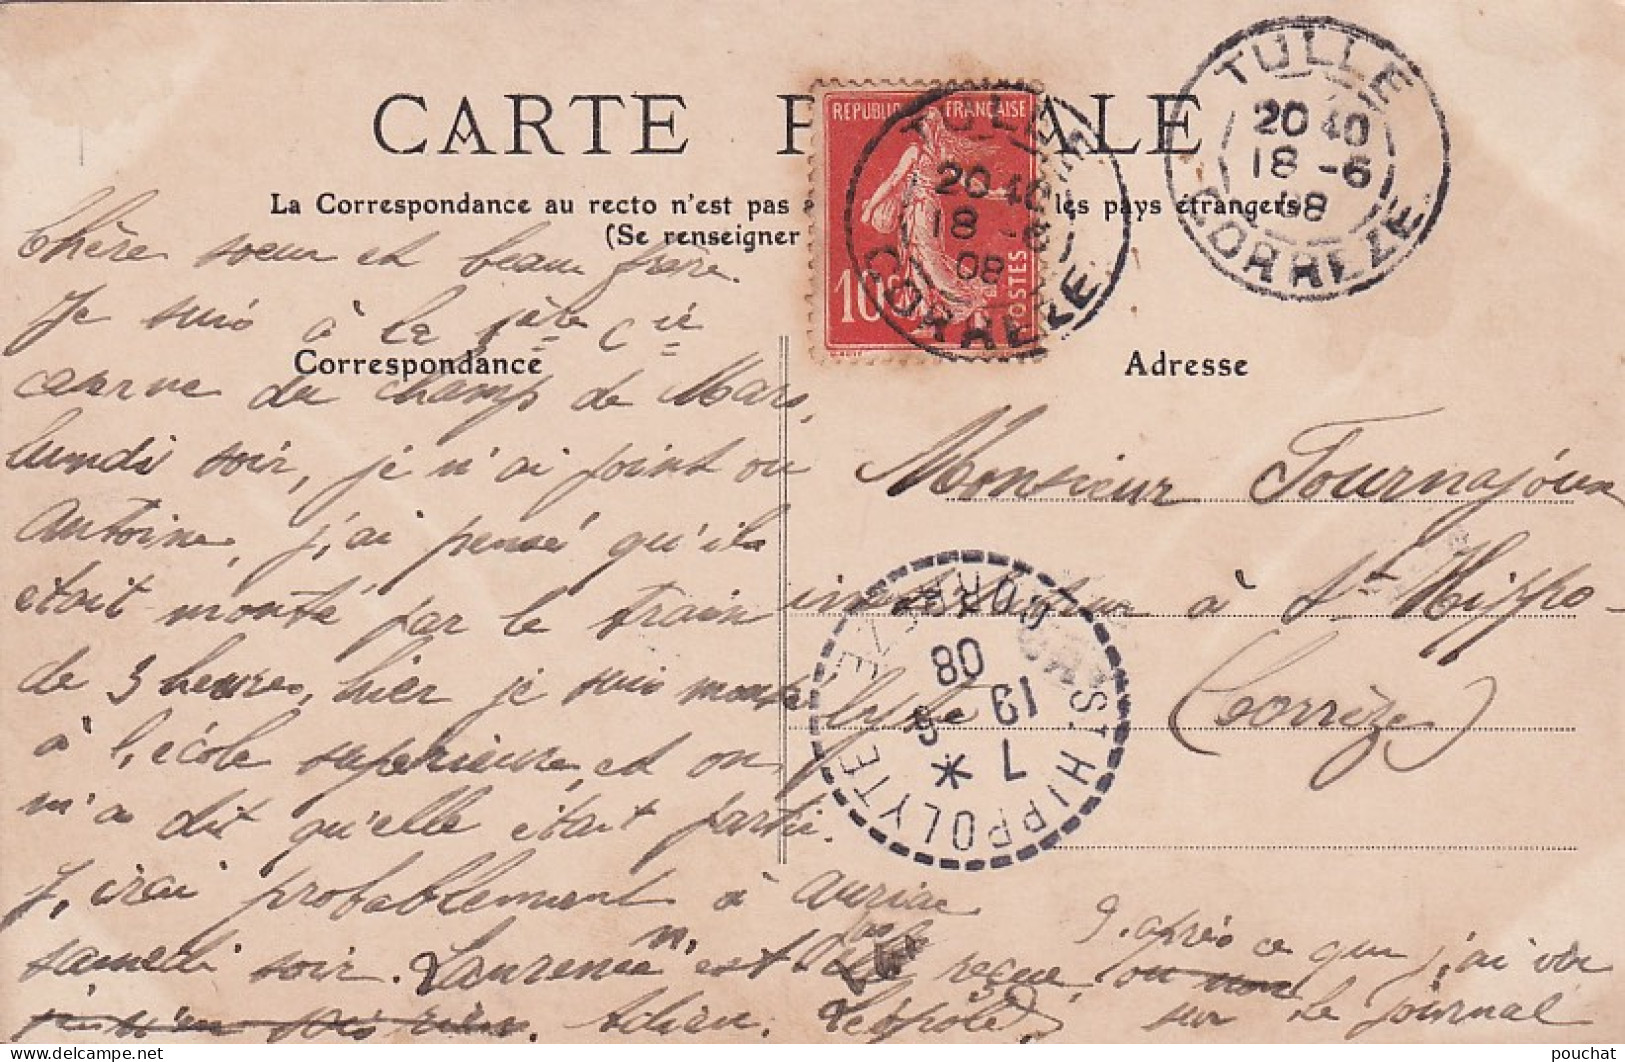 CARTE P ALE
La Correspondance au recto n'est pas les pays étrangers
(Se renseigner
REPUBLIQUE FRANÇAISE
10c POSTES
TULLE
20 40
18 -6
08
CORREZE
TULLE
20 40
18 -6
08
CORREZE
Correspondance
Adresse
Chère soeur et beau frère.
Je suis à la 1ère Cie
caserne du champ de Mars,
lundi soir, je n'ai point vu
Antoine, j'ai pensé qu'il
était monté par le train
de 3 heures, hier je suis monté
à l'école superieure, et on
m'a dit qu'elle était partie.
J'irai probablement à auriac
samedi soir. Laurence n'est pas reçue, ou non
Adieu. Léopold
d'après ce que j'ai vu
sur le journal
Monsieur Tournajoux
instituteur à St Hippo-
lyte (Corrèze)
ST HIPPOLYTE
CORREZE
7 *
19 6
08
pouchat